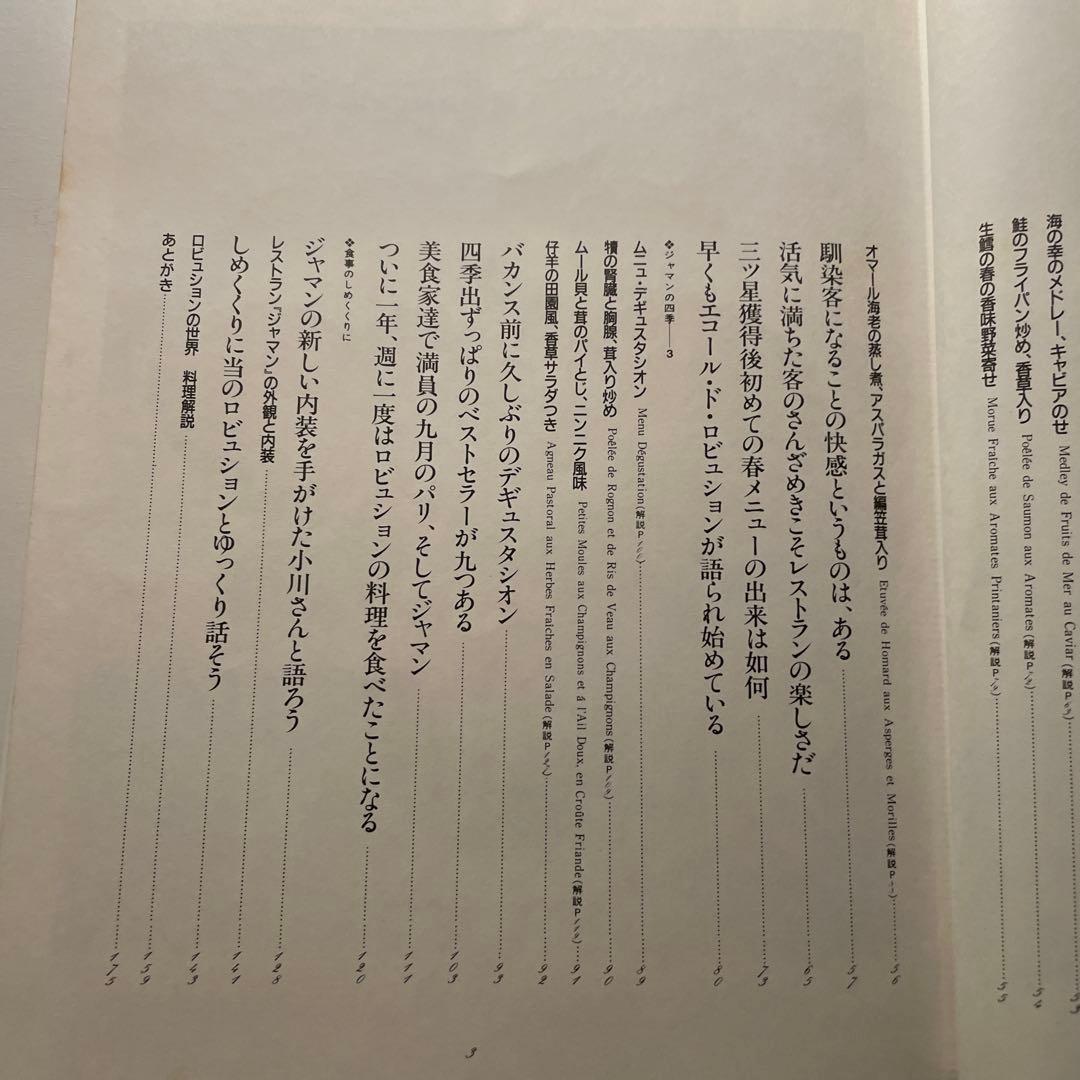 海の幸のメドレー、キャビアのせ Medley de Fruits de Mer au Caviar (解説P
鮭のフライパン炒め、香草入り Poêlée de Saumon aux Aromates (解説P 54
生鱈の春の香味野菜寄せ Morue Fraîche aux Aromates Printaniers (解説P 55
オマール海老の蒸し煮、アスパラガスと編笠茸入り Etuvée de Homard aux Asperges et Morilles (解説P 56
馴染客になることの快感というものは、ある 57
活気に満ちた客のさんざめきこそレストランの楽しさだ 65
三ツ星獲得後初めての春メニューの出来は如何 73
早くもエコール・ド・ロビュションが語られ始めている 80
❖ジャマンの四季——3
ムニュ・デギュスタシオン Menu Dégustation (解説P 89
犢の腎臓と胸腺、茸入り炒め Poêlée de Rognon et de Ris de Veau aux Champignons (解説P 90
ムール貝と茸のパイとじ、ニンニク風味 Petites Moules aux Champignons et á l'Ail Doux, en Croûte Friande (解説P 91
仔羊の田園風、香草サラダつき Agneau Pastoral aux Herbes Fraîches en Salade (解説P 92
バカンス前に久しぶりのデギュスタシオン 93
四季出ずっぱりのベストセラーが九つある 103
美食家達で満員の九月のパリ、そしてジャマン 111
ついに一年、週に一度はロビュションの料理を食べたことになる 120
❖食事のしめくくりに
ジャマンの新しい内装を手がけた小川さんと語ろう 128
レストラン『ジャマン』の外観と内装 141
しめくくりに当のロビュションとゆっくり話そう 143
ロビュションの世界 料理解説 159
あとがき 175
3